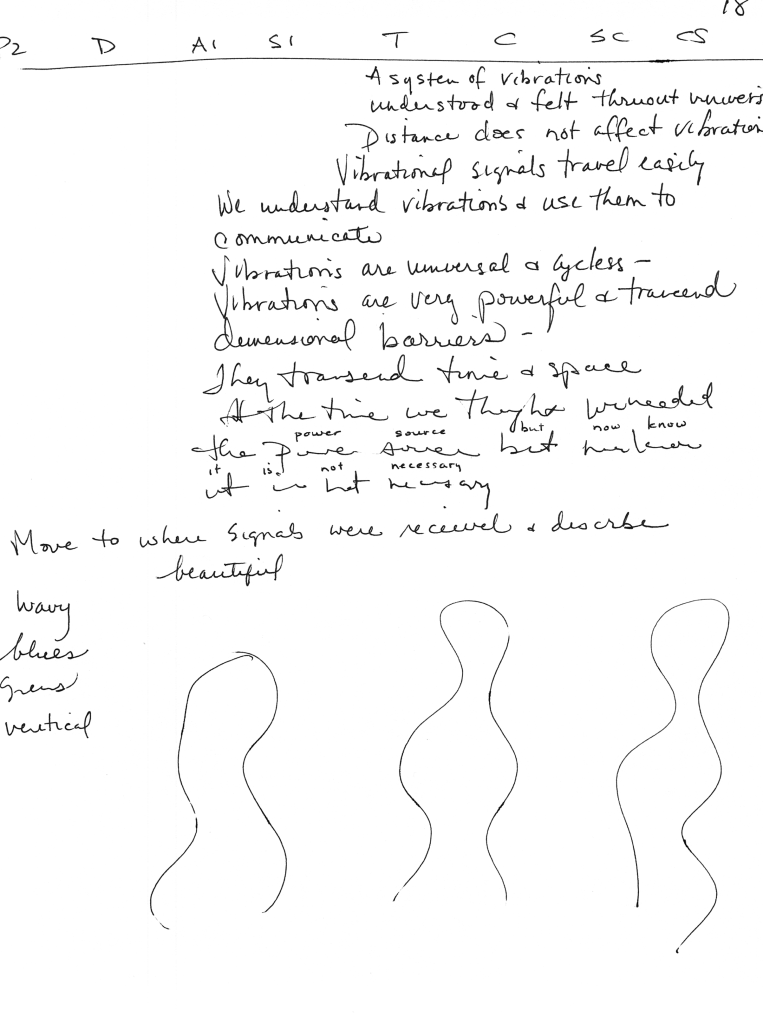 18
P2 D A1 S1 T C SC CS
A system of vibrations
understood & felt thruout univers
Distance does not affect vibration
Vibrational signals travel easily
We understand vibrations & use them to
communicate
Vibrations are universal & ageless -
Vibrations are very powerful & trancend
demensional barriers -
They transend time & space
At the time we thought we needed
power source but now know
the power source but now know
it is not necessary
it is not necessary
Move to where signals were received & describe
beautiful
Wavy
blues
Greens
vertical